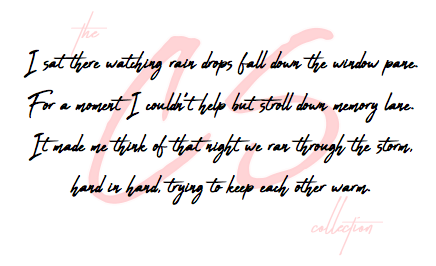 the
CS
I sat there watching rain drops fall down the window pane.
For a moment I couldn't help but stroll down memory lane.
It made me think of that night we ran through the storm,
hand in hand, trying to keep each other warm.
collection